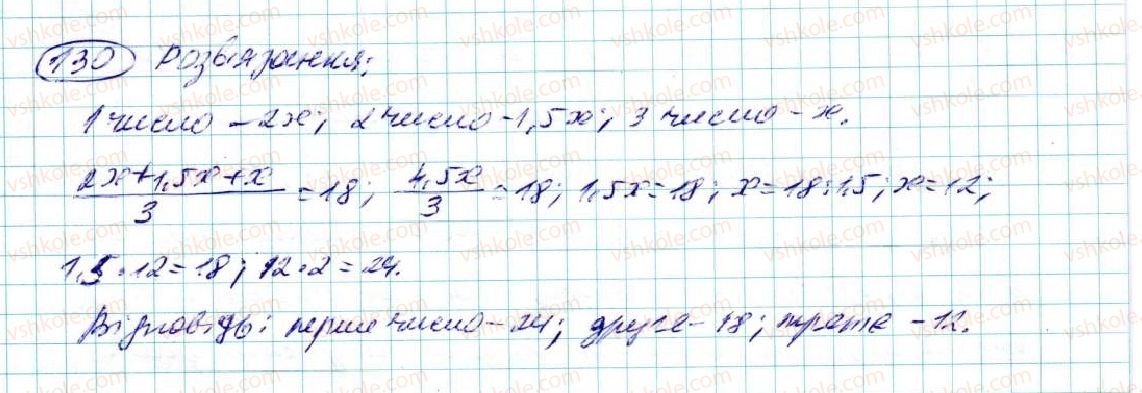 130 Розв'язання:
1 число - 2x; 2 число - 1,5x; 3 число - x.
(2x+1,5x+x)/3 = 18; 4,5x/3 = 18; 1,5x = 18; x = 18:1,5; x = 12;
1,5·12 = 18; 12·2 = 24.
Відповідь: перше число - 24; друге - 18; третє - 12.